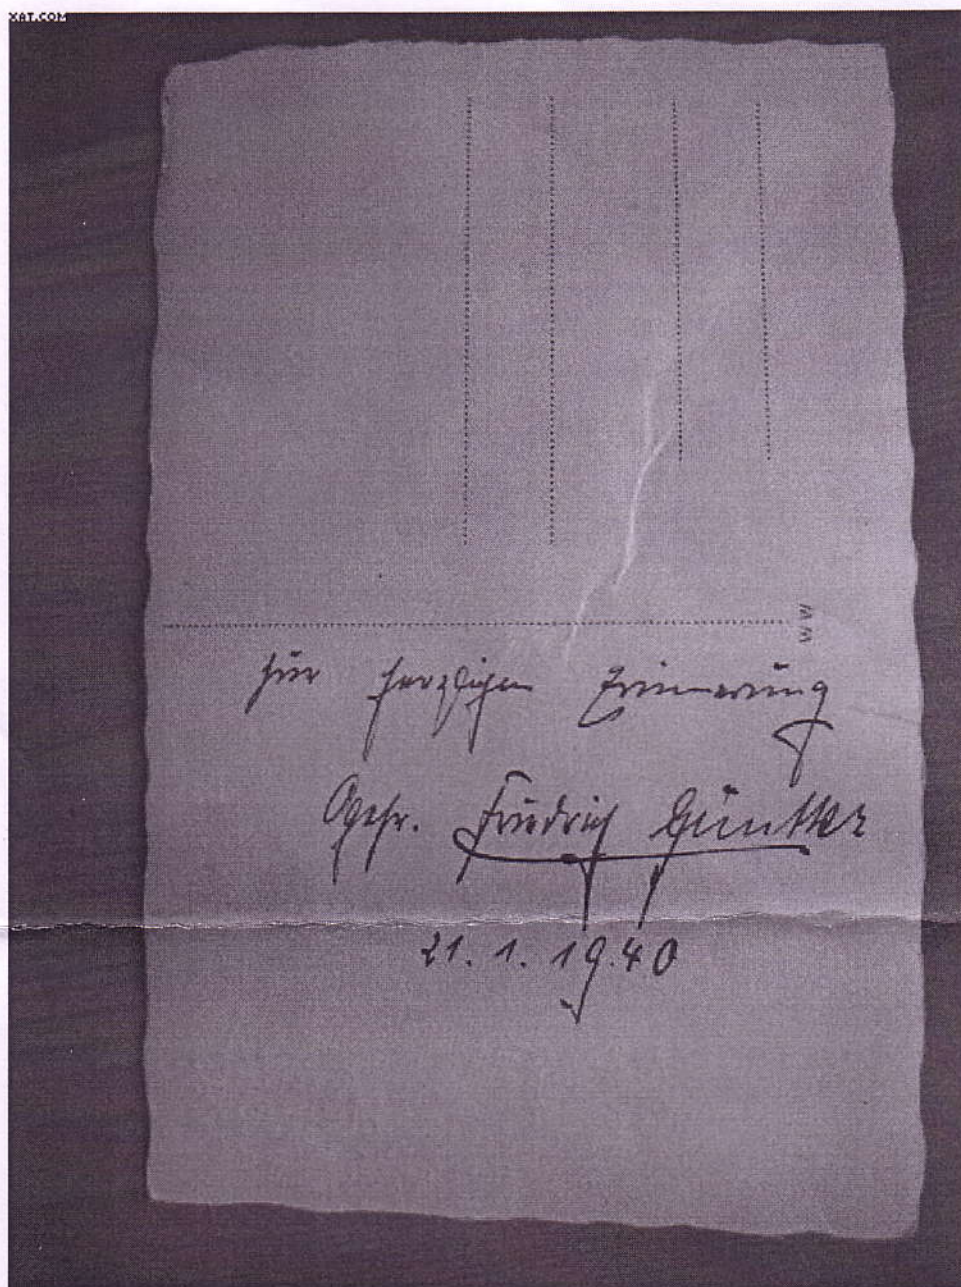 XAT.COM
W W
Zur herzlichen Erinnerung
Ogefr. Friedrich Günther
21. 1. 19.40